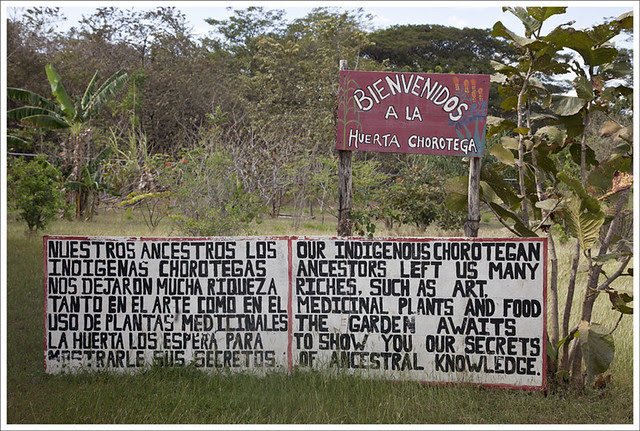 BIENVENIDOS
A LA
HUERTA CHOROTEGA
NUESTROS ANCESTROS LOS
INDIGENAS CHOROTEGAS
NOS DEJARON MUCHA RIQUEZA
TANTO EN EL ARTE COMO EN EL
USO DE PLANTAS MEDICINALES
LA HUERTA LOS ESPERA PARA
MOSTRARLE SUS SECRETOS.
OUR INDIGENOUS CHOROTEGAN
ANCESTORS LEFT US MANY
RICHES, SUCH AS ART,
MEDICINAL PLANTS AND FOOD
THE GARDEN AWAITS
TO SHOW YOU OUR SECRETS
OF ANCESTRAL KNOWLEDGE.